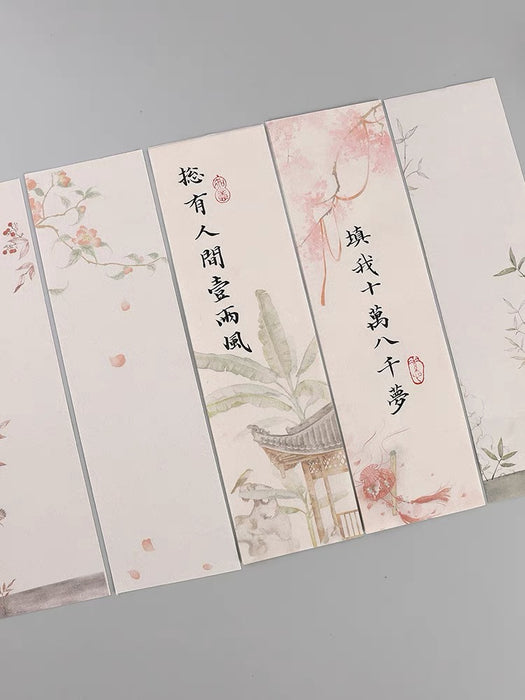 捴有人間壹兩風
填我十萬八千夢